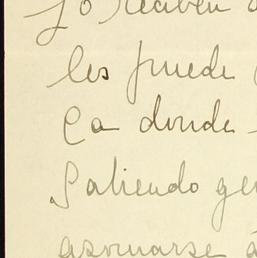 lo reciben
les puede
Ca donde
Saliendo ge
asomarse á